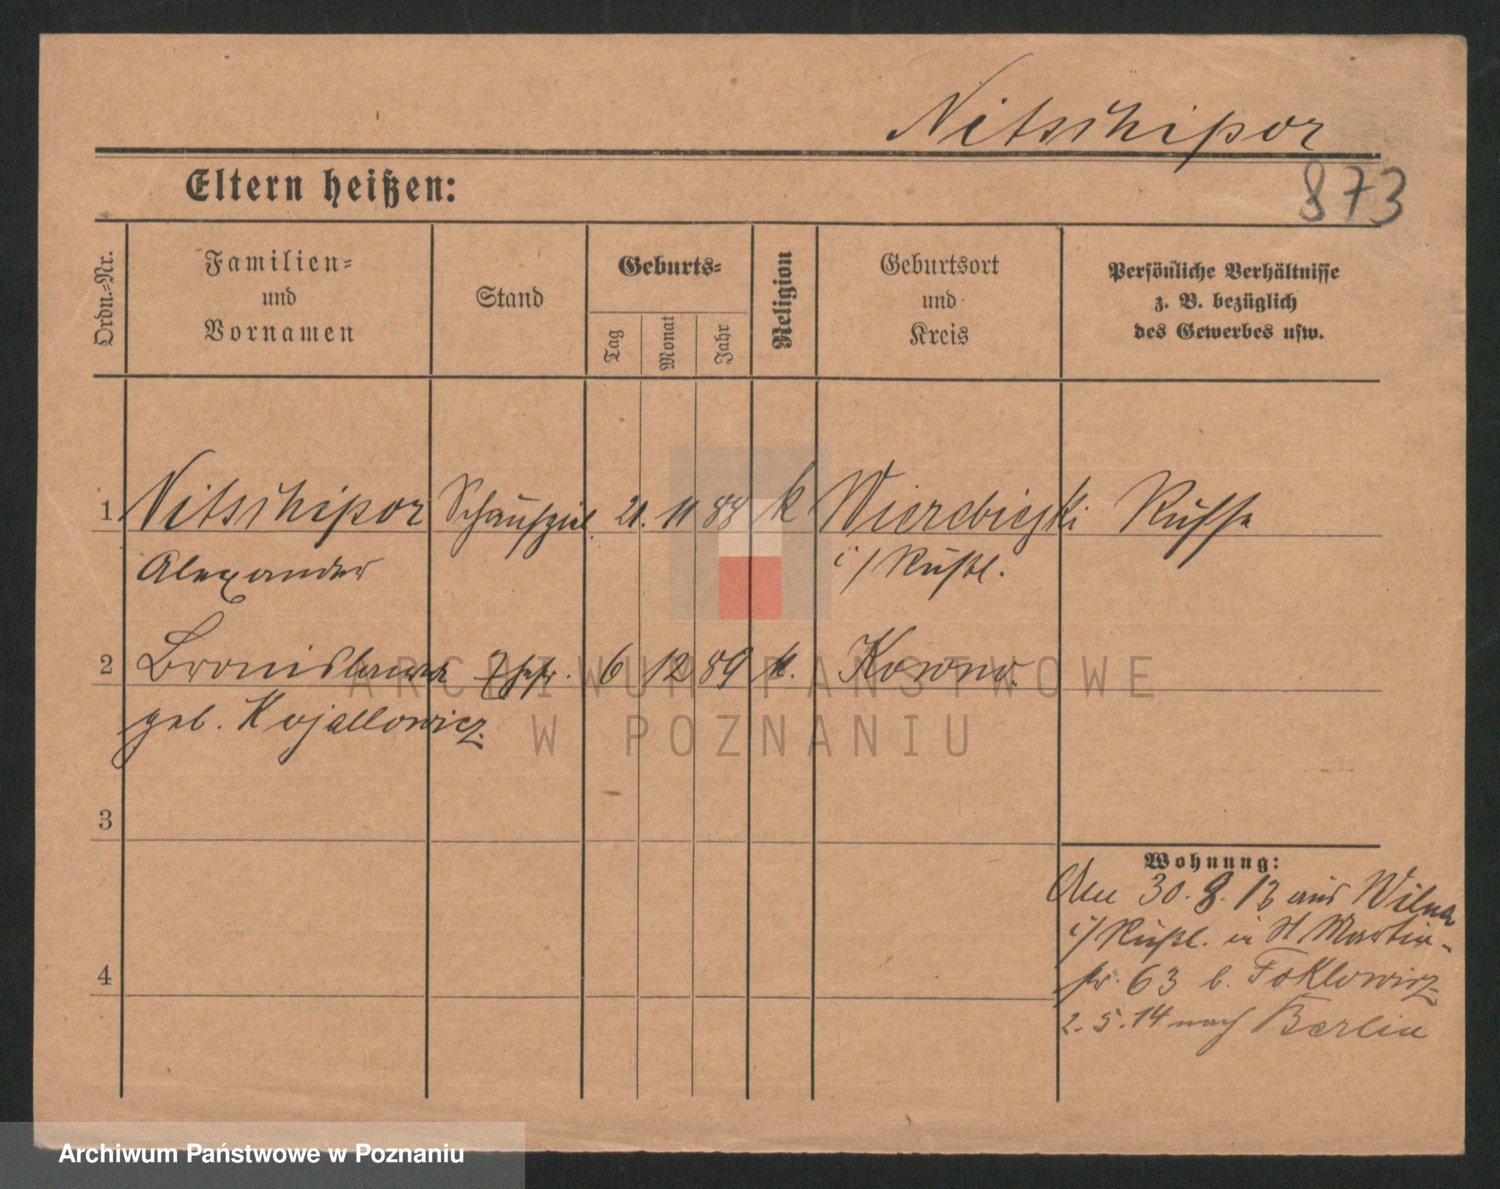 Nitschipor
873
Eltern heißen:
Ordn.-Nr.
Familien-
und
Vornamen
Stand
Geburts-
Tag
Monat
Jahr
Religion
Geburtsort
und
Kreis
Persönliche Verhältnisse
z. B. bezüglich
des Gewerbes usw.
1 Nitschipor Schauspiel. 21. 11 88 k Wierebiejki Russe
Alexander i/Rußl.
2 Bronislawa Ehefr. 6 12 89 k. Kowno.
geb. Kojallowicz.
3
4
Wohnung:
Am 30. 8. 13 aus Wilna
i/Rußl. in St Martin-
str. 63 b. Foklowicz
2. 5. 14 nach Berlin
ARCHIWUM PAŃSTWOWE
W POZNANIU
Archiwum Państwowe w Poznaniu